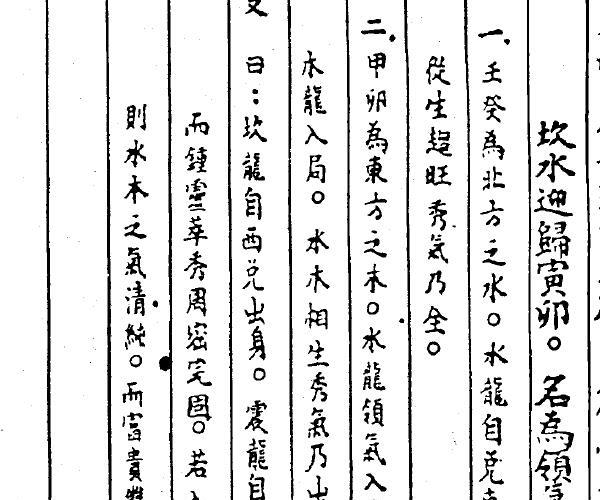 坎水迎歸寅卯。名為領
一、壬癸為北方之水。水龍自兌
從生趨旺秀氣乃全。
二、甲卯為東方之木。水龍領氣入
木龍入局。水木相生秀氣乃出
曰：坎龍自西兌出身。震龍自
而鍾靈萃秀周密完固。若
則水木之氣清純。而富貴